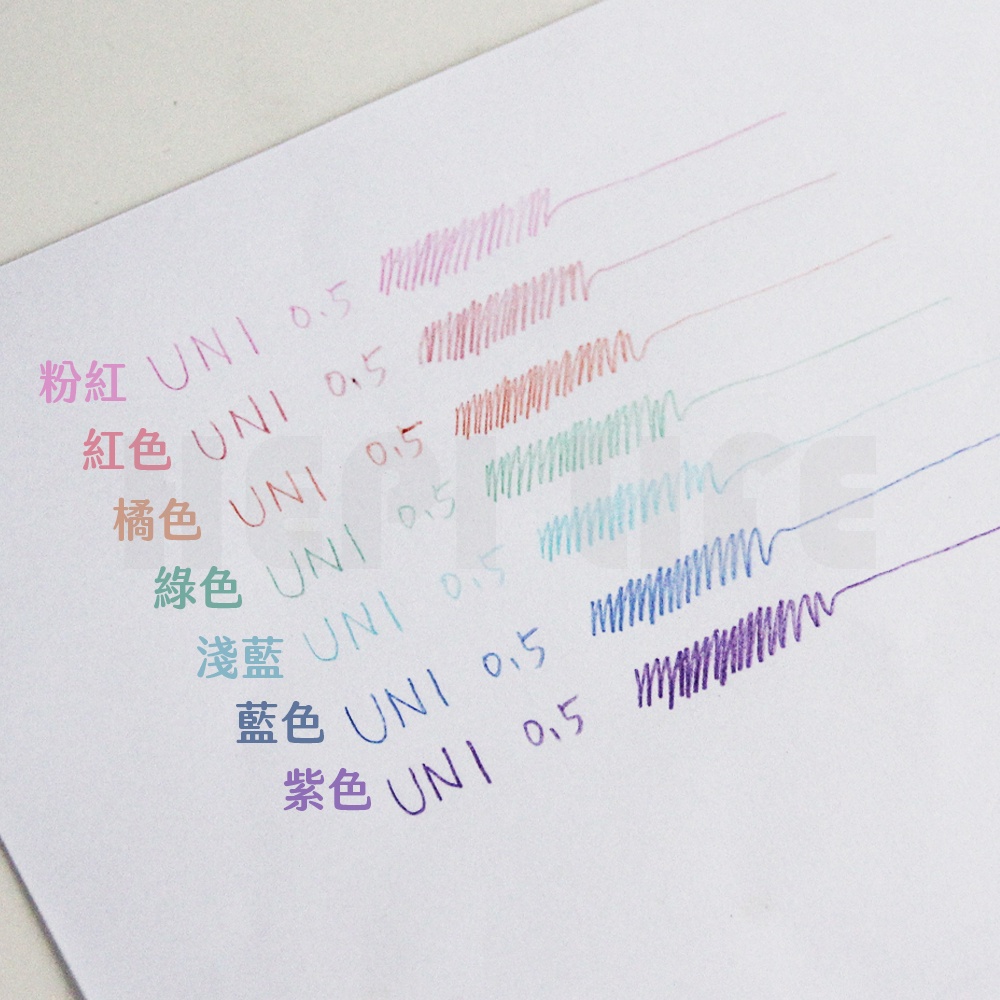 粉紅 UNI 0.5
紅色 UNI 0.5
橘色 UNI 0.5
綠色 UNI 0.5
淺藍 UNI 0.5
藍色 UNI 0.5
紫色 UNI 0.5